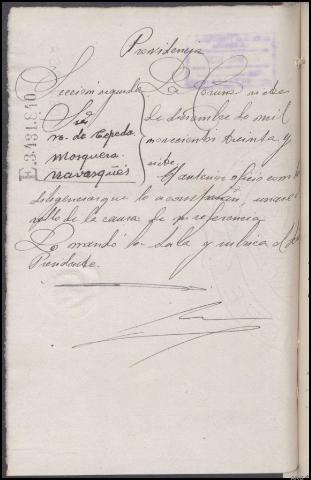 Providencia
Sección segunda
Sres
de Cepeda
Mosquera
Navasqüés
La Coruña siete
de diciembre de mil
novecientos treinta y
siete.
El anterior oficio con
diligencias que lo acompañan, unase al
rollo de la causa de su referencia
Lo mandó la Sala y rubrica el
Presidente.
E.3431.840